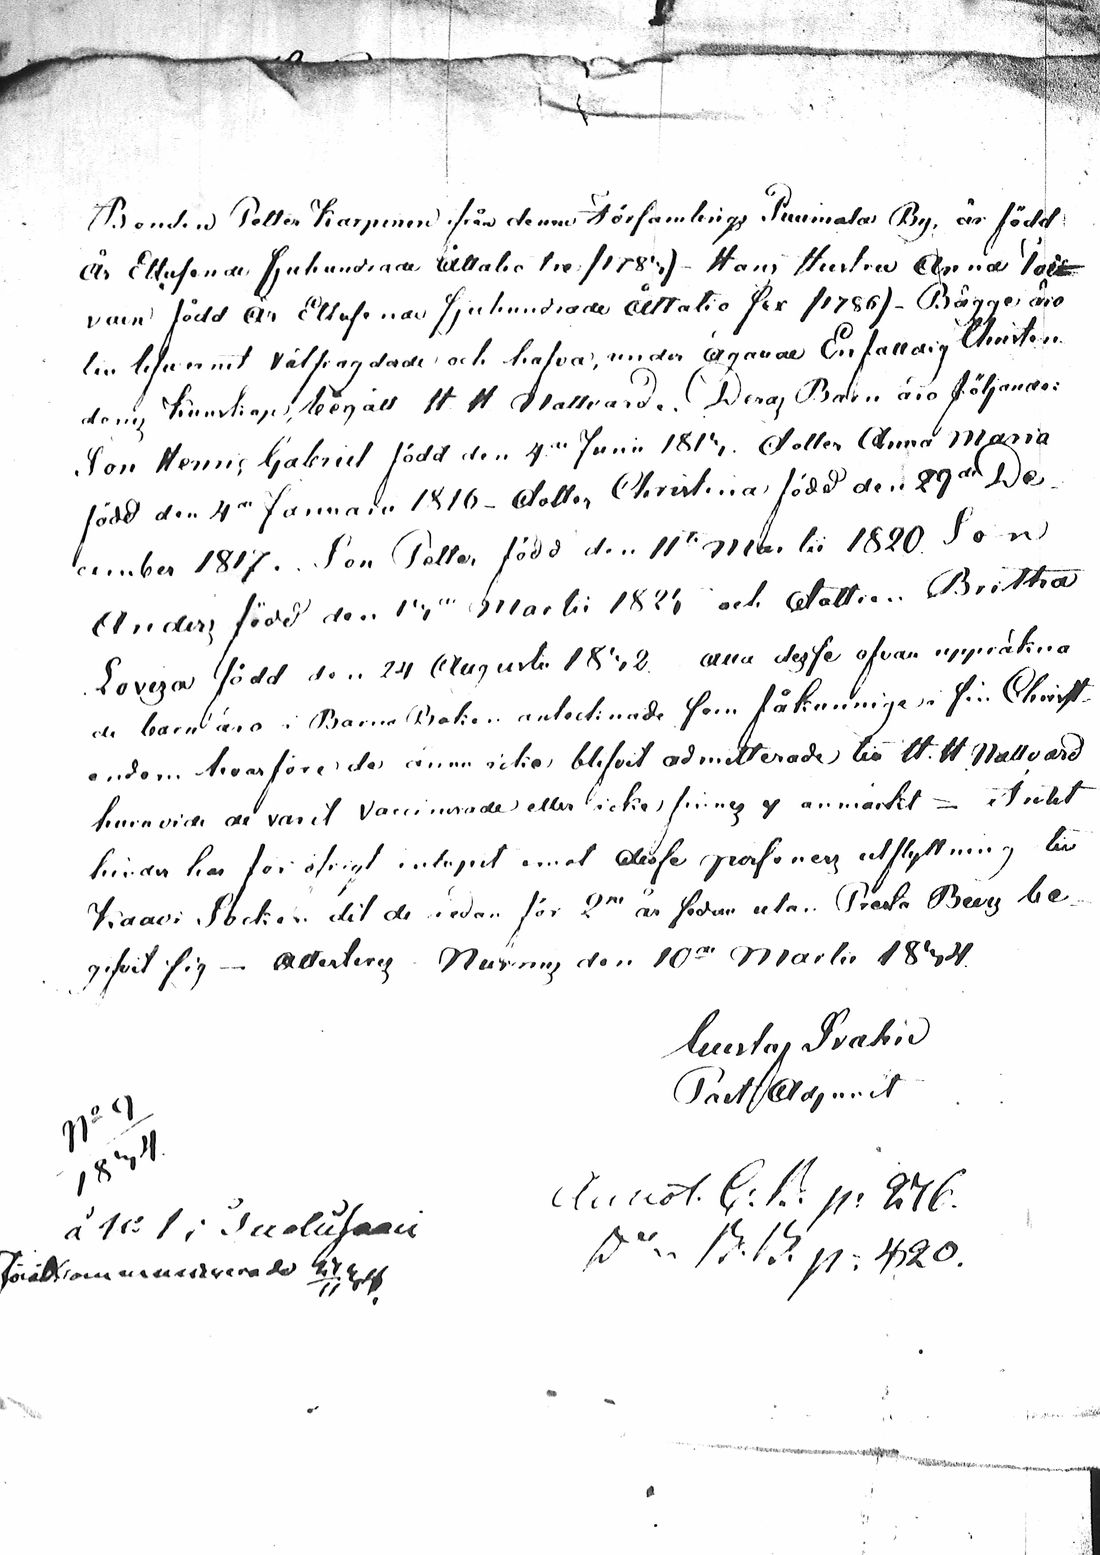 Bonden Petter Karpinen från denne Församlings Puumala By, är född
År Ettusende Sjuhundrade Åttatio tre (1783) - Hans Hustru Anna Toi-
vain född År Ettusende Sjuhundrade Åttatio sex (1786) - Bägge äro
till lefvernet välfrägdade och hafva, under ägande Enfaldig Christen
doms Kunskap, begått H. H. Nattvard. Deras Barn äro följande:
Son Henric Gabriel född den 4de Junii 1813. Dotter Anna Maria
född den 4de Januarii 1816 - Dotter Christina född den 29de De-
cember 1817. Son Petter född den 11te Martii 1820 Son
Anders född den 13de Martii 1823 och Dottren Brittha
Lovisa född den 24 Augusti 1832 alla desse ofvan uppräkna
de barn äro i Barna Boken antecknade som fåkunnige i sin Christ-
endom hvarföre de ännu icke blifvit admitterade till H. H. Nattvard
huruvida de varit Vaccinerade eller icke finnes ej anmärkt - Intet
hinder har för öfrigt inlupit emot desse personers utflyttning till
Kaavi Socken dit de redan för 2ne år sedan utan Presta Bevis be-
gifvit sig - Attesteras Nurmis den 10de Martii 1834
Gustaf
Past. Adjunct
No 9
1834
å No 1 i
Annot. C. B. p: 276.
D:o B. B. p: 420.